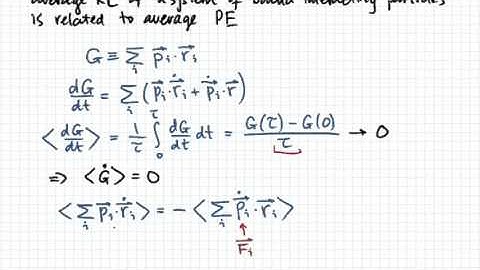 average KE of a system of bound interacting particles
is related to average PE
G ≡ Σᵢ p⃗ᵢ · r⃗ᵢ
dG/dt = Σᵢ (p⃗ᵢ · ṙ⃗ᵢ + ṗ⃗ᵢ · r⃗)
⟨dG/dt⟩ = 1/τ ∫₀^τ dG/dt dt = (G(τ) − G(0))/τ → 0
⇒ ⟨Ġ⟩ = 0
⟨Σᵢ p⃗ᵢ · ṙ⃗ᵢ⟩ = − ⟨Σᵢ ṗ⃗ᵢ · r⃗ᵢ⟩
↑
F⃗ᵢ